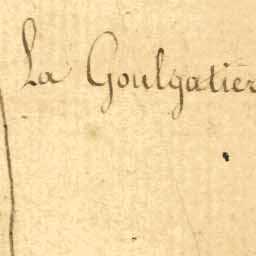 La Goulgatier